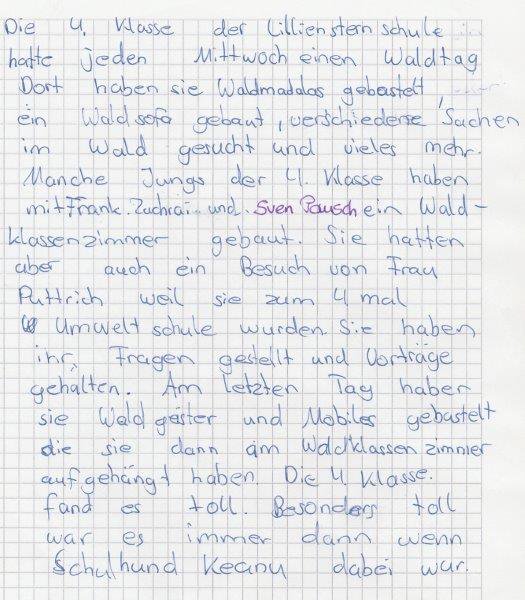 Die 4. Klasse der Lillienstern schule
hatte jeden Mittwoch einen Waldtag
Dort haben sie Waldmadalas gebastelt,
ein Waldsofa gebaut, verschiedene Sachen
im Wald gesucht und vieles mehr.
Manche Jungs der 4. Klasse haben
mit Frank. Zuchrai.. und. Sven Pausch ein Wald-
klassenzimmer gebaut. Sie hatten
aber auch ein Besuch von Frau
Puttrich weil sie zum 4 mal
Umwelt schule wurden. Sie haben
ihr, Fragen gestellt und Vorträge
gehalten. Am letzten Tag haben
sie Wald geister und Mobiles gebastelt
die sie dann am Waldklassen zimmer
aufgehängt haben. Die 4. Klasse.
fand es toll. Besonders toll
war es immer dann wenn
Schulhund Keanu dabei war.